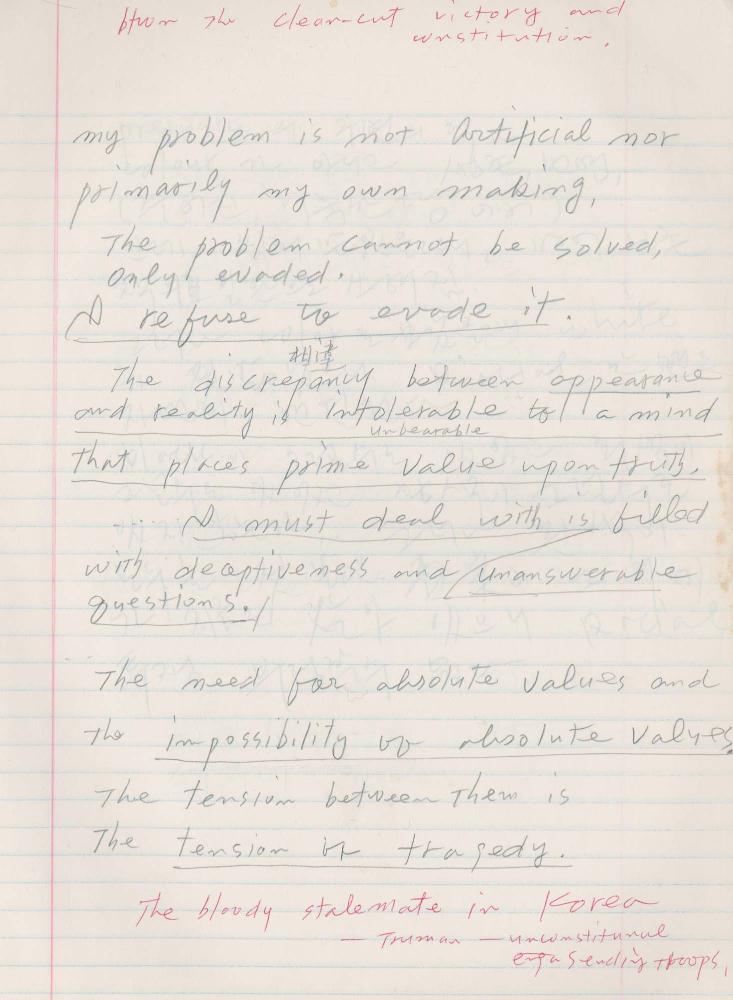 btwn the clear-cut victory and
constitution.
my problem is not Artificial nor
primarily my own making,
The problem cannot be solved,
only evaded.
I refuse to evade it.
相違
The discrepancy between appearance
and reality is intolerable to a mind
unbearable
that places prime value upon truth.
..... I must deal with is filled
with deceptiveness and unanswerable
questions.
The need for absolute values and
the impossibility of absolute values
The tension between Them is
The tension of tragedy.
The bloody stalemate in Korea
— Truman — unconstitunal
sending troops,